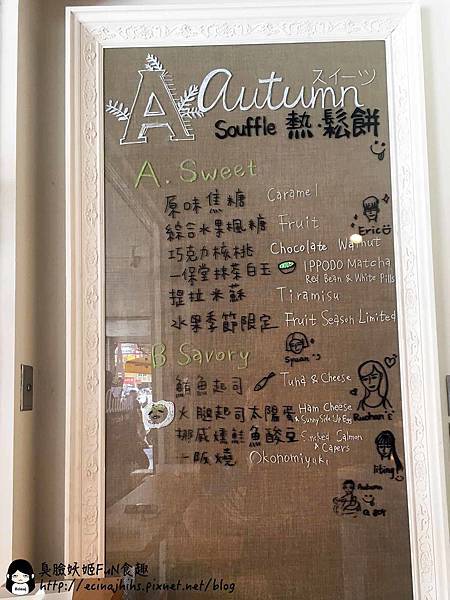 A autumn
スイーツ
Souffle 熱·鬆餅
A. Sweet
原味焦糖 Caramel
綜合水果楓糖 Fruit
巧克力核桃 Chocolate Walnut
一保堂抹茶白玉 IPPODO Matcha
Red Bean & White Pills
提拉米蘇 Tiramisu
水果季節限定 Fruit Season Limited
B Savory
鮪魚起司 Tuna & Cheese
火腿起司太陽蛋 Ham Cheese
& Sunny Side Up Egg
挪威燻鮭魚酸豆 Smoked Salmon
& Capers
大阪燒 Okonomiyaki
Eric
Ruchan
iting
Autumn
臭臉妖姬FuN食趣
http://ecinajhihs.pixnet.net/blog